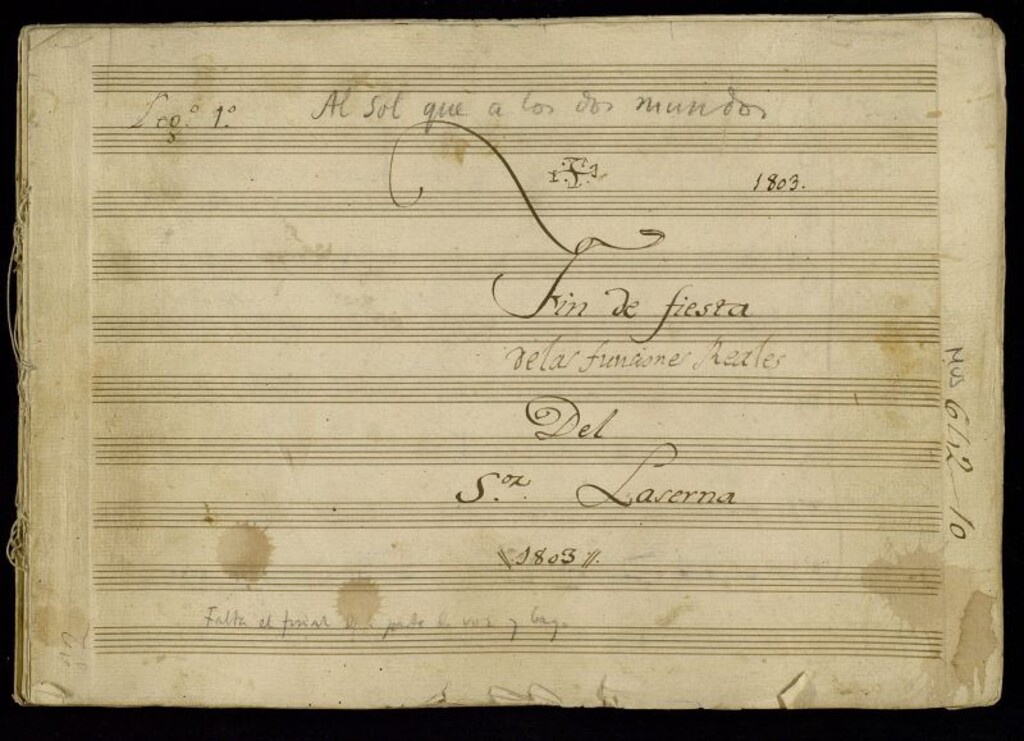 Leg.º 1.º Al Sol que a los dos mundos
1803.
Fin de fiesta
de las funciones Reales
Del
S.or Laserna
1803 //.
Falta el final de la parte de voz y bajo
Mus 642-10